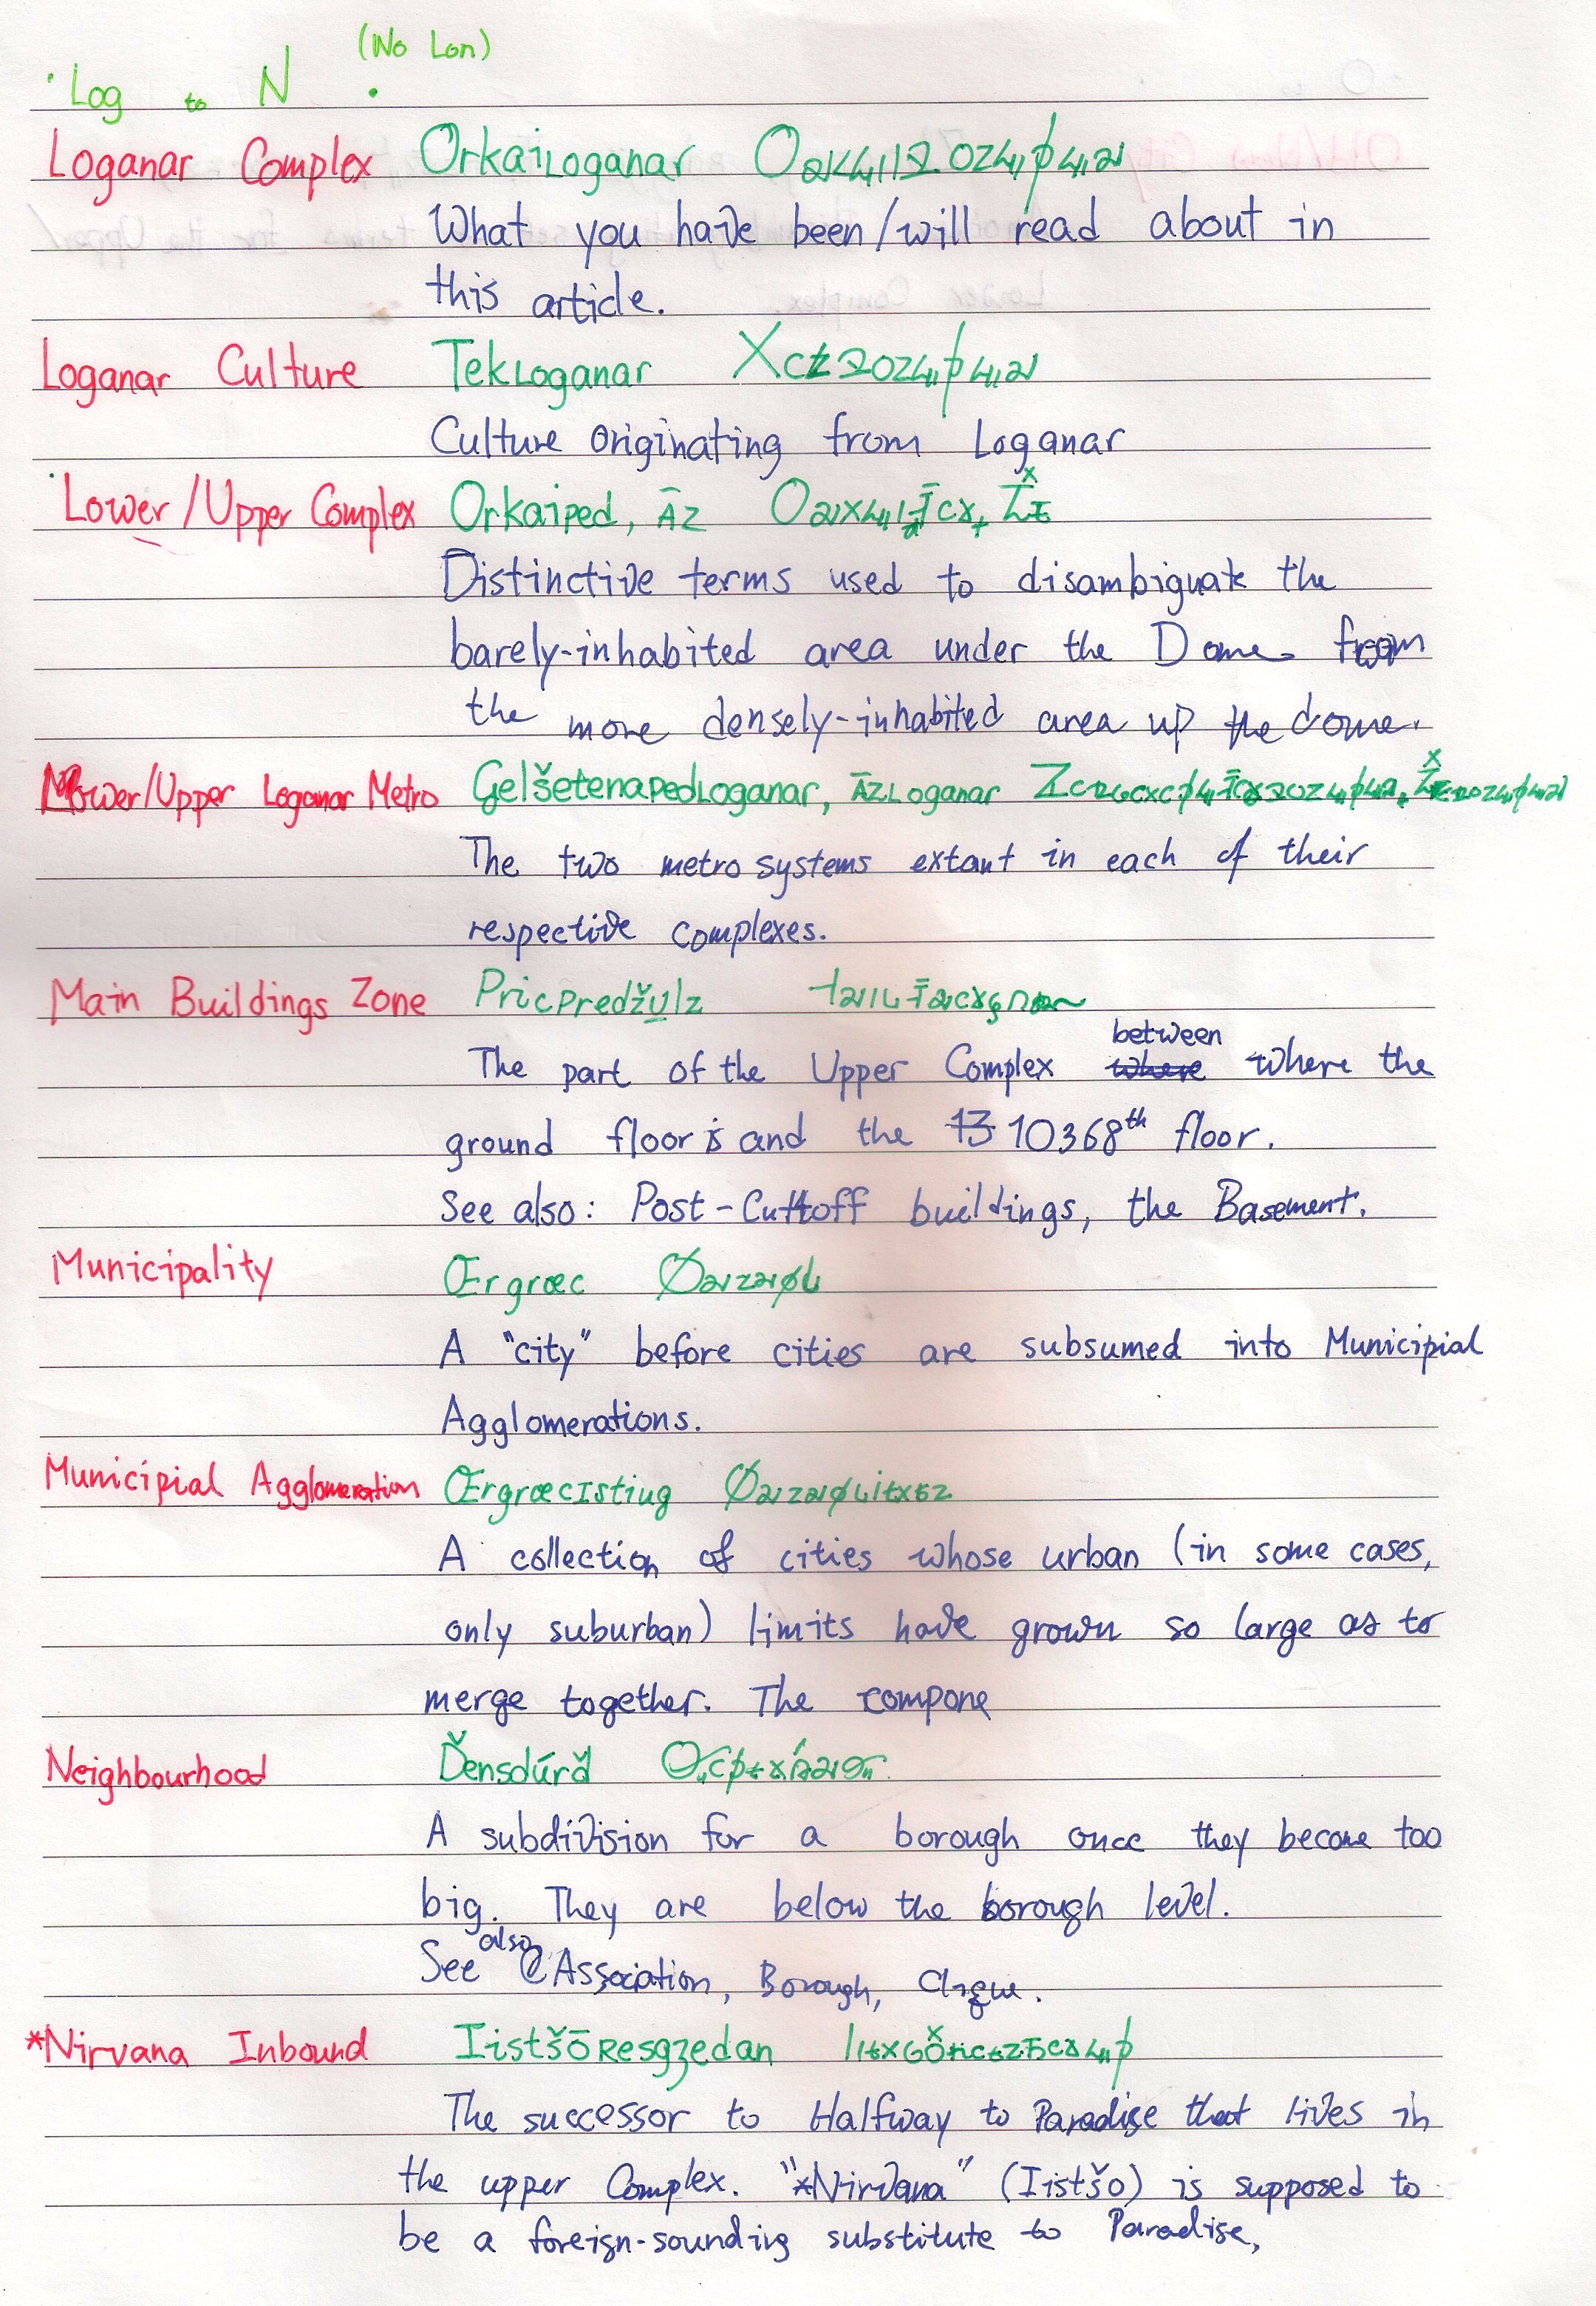 (No Lon)
·Log to N ·
Loganar Complex OrkaiLoganar
What you have been/will read about in
this article.
Loganar Culture TekLoganar
Culture originating from Loganar
Lower/Upper Complex Orkaiped, Āz
Distinctive terms used to disambiguate the
barely-inhabited area under the Dome from
the more densely-inhabited area up the dome.
Lower/Upper Loganar Metro GelšetenapedLoganar, ĀzLoganar
The two metro systems extant in each of their
respective complexes.
Main Buildings Zone Pricpredžulz
between
The part of the Upper Complex where where the
ground floor is and the 13 10368th floor.
See also: Post-Cuttoff buildings, the Basement.
Municipality Œrgrœc
A "city" before cities are subsumed into Municipial
Agglomerations.
Municipial Agglomeration ŒrgrœcIsting
A collection of cities whose urban (in some cases,
only suburban) limits have grown so large as to
merge together. The compone
Neighbourhood Ďensdúrď
A subdivision for a borough once they become too
big. They are below the borough level.
See also Association, Borough, 
*Nirvana Inbound IistšōResgʒedan
The successor to Halfway to Paradise that lives in
the upper Complex. "*Nirvana" (Iistšo) is supposed to
be a foreign-sounding substitute to Paradise,